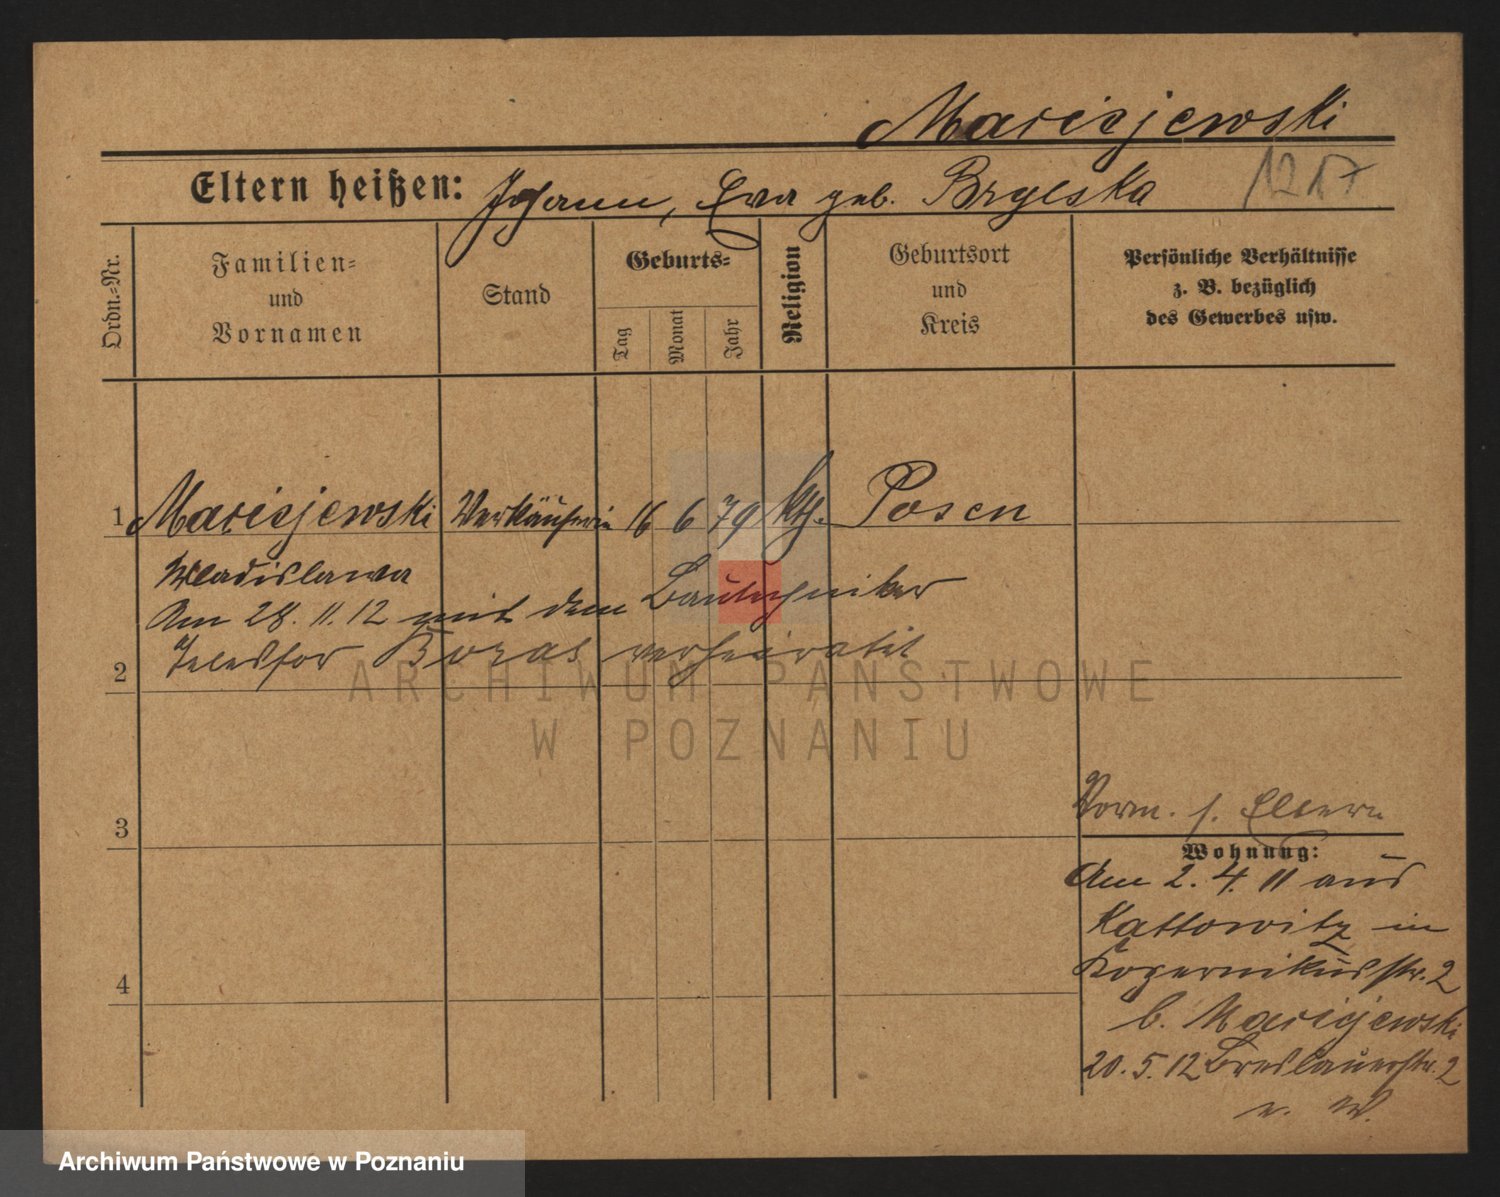 Maciejewski
Eltern heißen: Johann, Eva geb. Brylska
1217
Ordn.=Nr.
Familien=
und
Vornamen
Stand
Geburts=
Tag
Monat
Jahr
Religion
Geburtsort
und
Kreis
Persönliche Verhältnisse
z. B. bezüglich
des Gewerbes usw.
1 Maciejewski Verkäuferin 16 6 79 kth. Posen
Wladislawa
Am 28. 11. 12 mit dem Bautechniker
2 Telesfor verheiratet
ARCHIWUM PAŃSTWOWE
W POZNANIU
Vorm. s. Eltern
3
Wohnung:
Am 2. 4. 11 aus
Kattowitz in
4 Kopernikusstr. 2
b. Maciejewski
20. 5. 12 Breslauerstr. 2
Archiwum Państwowe w Poznaniu